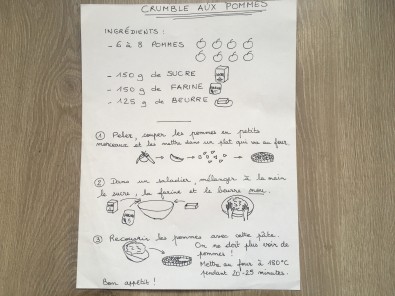 CRUMBLE AUX POMMES
INGRÉDIENTS :
- 6 à 8 POMMES
- 150 g de SUCRE
- 150 g de FARINE
- 125 g de BEURRE
① Peler, couper les pommes en petits
morceaux et les mettre dans un plat qui va au four.
② Dans un saladier mélanger à la main
le sucre, la farine et le beurre mou.
③ Recouvrir les pommes avec cette pâte.
On ne doit plus voir de
pommes !
Mettre au four à 180°C
pendant 20-25 minutes.
Bon appétit !